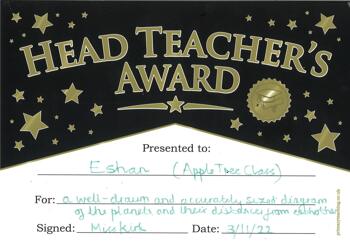 HEAD TEACHER'S
AWARD
Presented to:
Eshan (Apple Tree Class)
For: a well-drawn and accurately sized diagram
of the planets and their distances from eachother
Signed: Miss Kirk Date: 3/11/22